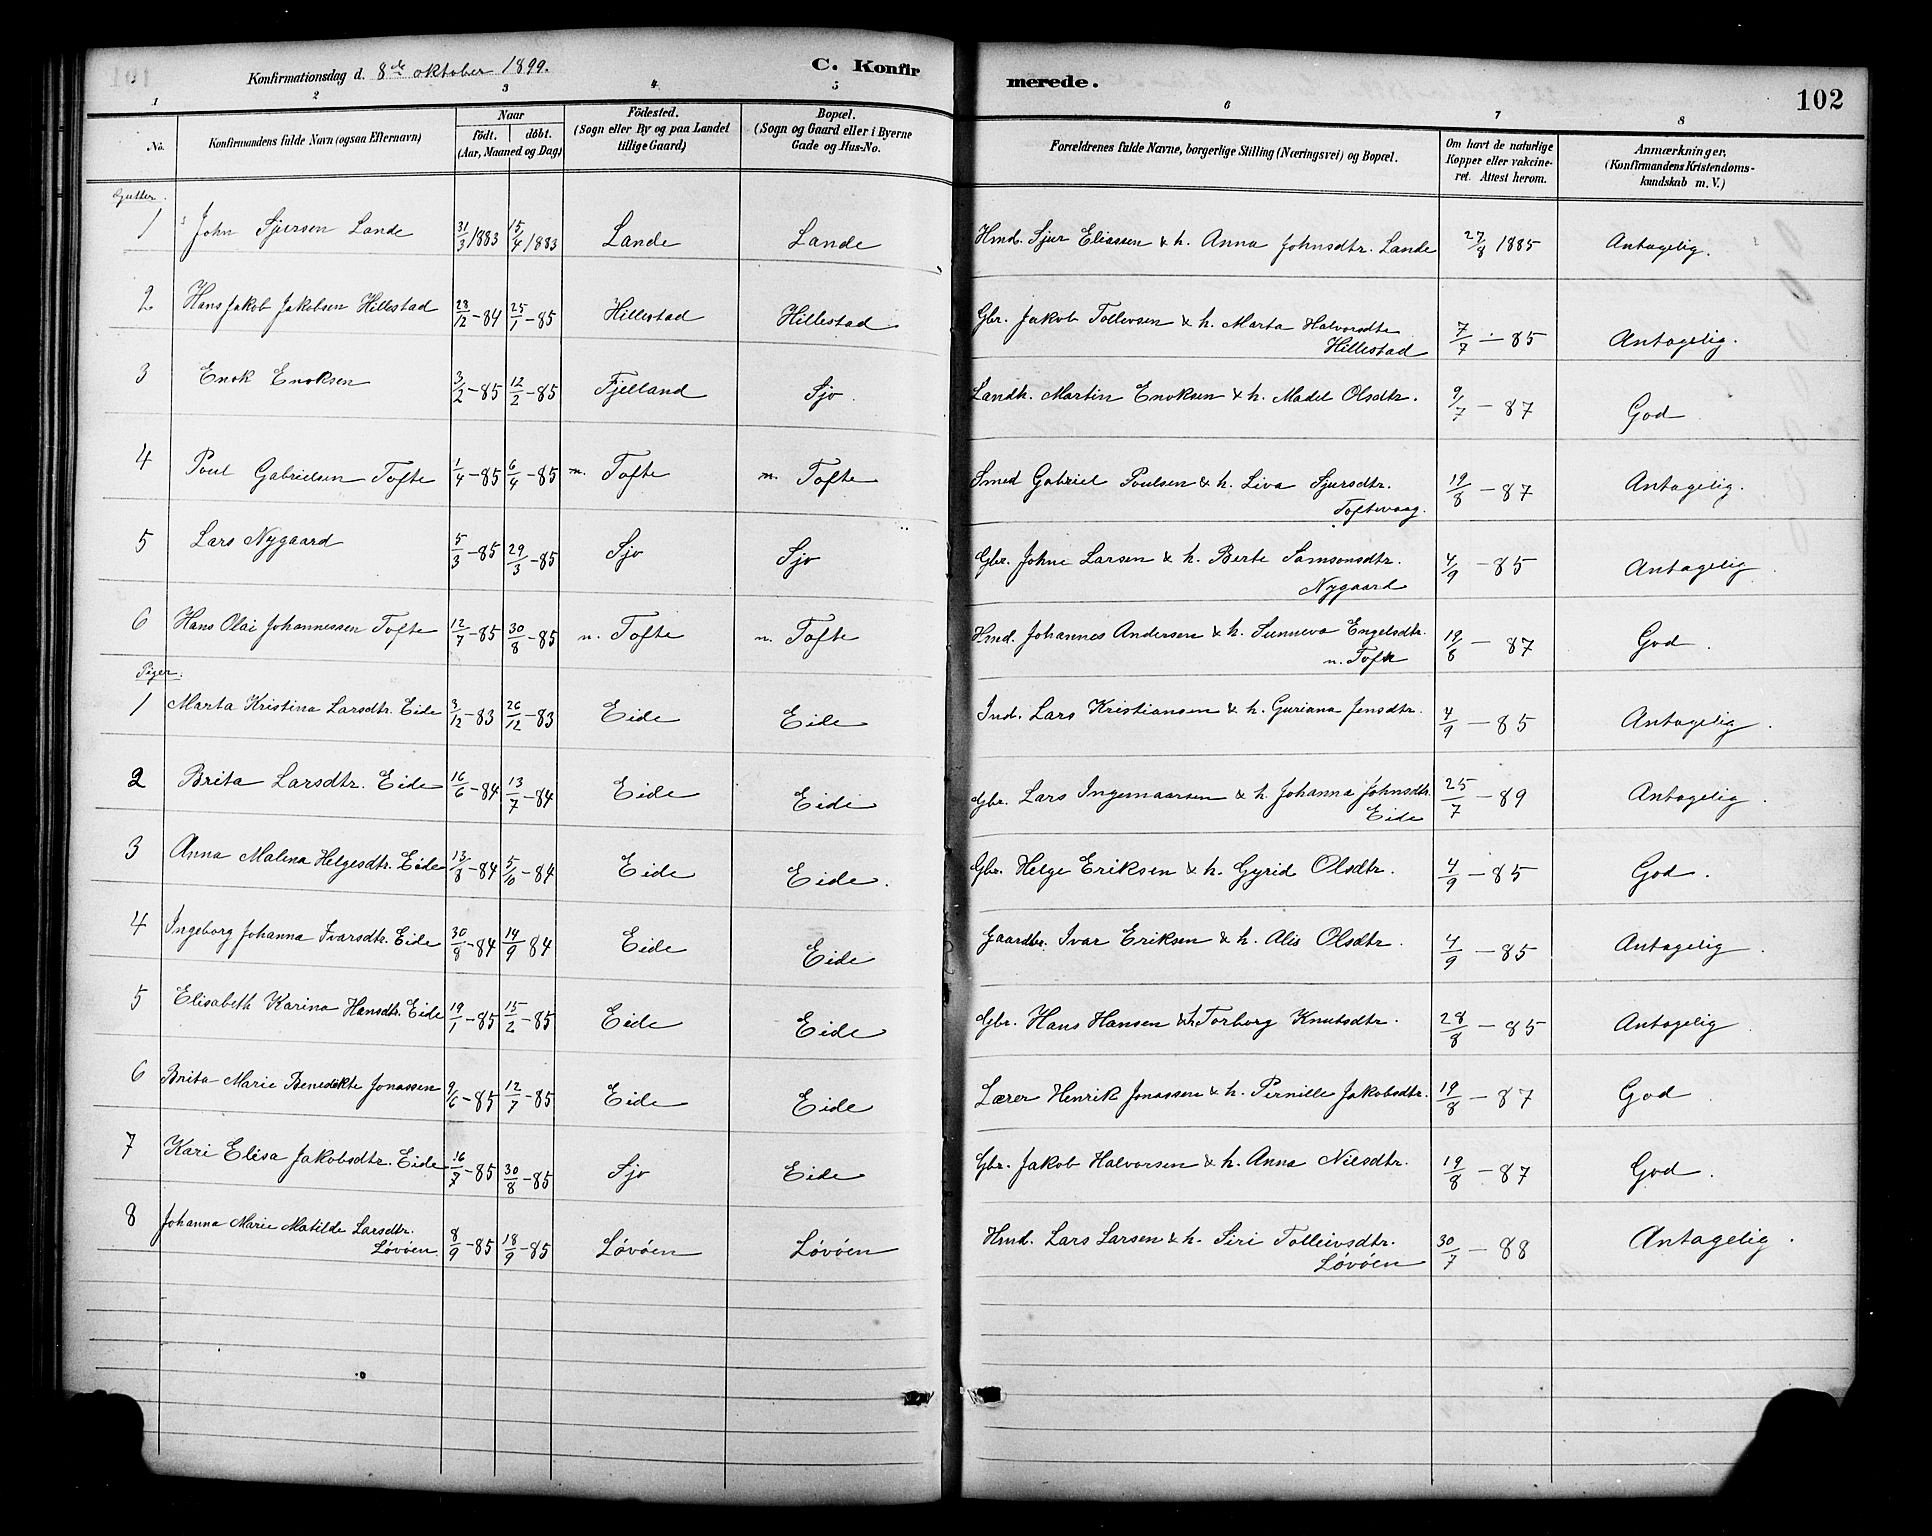 Konfirmationsdag d. 8de oktober 1899. C. Konfirmerede. 102
1 2 3 4 5 6 7 8
No. Konfirmandens fulde Navn (ogsaa Efternavn) Naar födt. döbt. (Aar, Maaned og Dag) Födested. (Sogn eller By og paa Landet tillige Gaard) Bopæl. (Sogn og Gaard eller i Byerne Gade og Hus-No. Forældrenes fulde Navne, borgerlige Stilling (Næringsvei) og Bopæl. Om havt de naturlige Kopper eller vakcineret. Attest herom. Anmærkninger, (Konfirmandens Kristendomskundskab m. V.)
Gutter.
1 John Sjursen Lande 31/3 1883 15/4 1883 Lande Lande Hmd. Sjur Eliassen & h. Anna Johnsdtr. Lande 27/8 1885 Antagelig.
2 Hans Jakob Jakobsen Hillestad 28/12-84 25/1-85 Hillestad Hillestad Gbr. Jakob Tollevsen & h. Marta Halvorsdtr
Hillestad 7/7-85 Antagelig.
3 Enok Enoksen 3/2-85 12/2-85 Fjelland Sjo. Landh. Martin Enoksen & h. Madel Olsdtr. 9/7-87 God
4 Poul Gabrielsen Tofte 1/4-85 6/4-85 n. Tofte n. Tofte Smed Gabriel Poulsen & h. Liva Sjursdtr.
Toftevaag. 19/8-87 Antagelig.
5 Lars Nygaard 5/3-85 29/3-85 Sjo Sjo Gbr. Johne Larsen & h. Berte Samsonsdtr.
Nygaard 4/9-85 Antagelig.
6 Hans Olai Johannessen Tofte 12/7-85 30/8-85 n. Tofte n. Tofte Hmd. Johannes Andersen & h. Sunneva Engelsdtr.
n. Tofte 19/8-87 God.
Piger.
1 Marta Kristina Larsdtr. Eide 3/12-83 26/12-83 Eide Eide Ind. Lars Kristiansen & h. Guriana Jensdtr. 4/9-85 Antagelig.
2 Brita Larsdtr. Eide 16/6-84 13/7-84 Eide Eide Gbr. Lars Ingemaarsen & h. Johanna Johnsdtr.
Eide 25/7-89 Antagelig.
3 Anna Malena Helgesdtr. Eide 13/8-84 5/10-84 Eide Eide. Gbr. Helge Eriksen & h. Gyrid Olsdtr. 4/9-85 God.
4 Ingeborg Johanna Ivarsdtr. Eide 30/8-84 14/9 84 Eide Eide Gaardbr. Ivar Eriksen & h. Alis Olsdtr. 4/9-85 Antagelig.
5 Elisabeth Karina Hansdtr. Eide 19/1-85 15/2-85 Eide Eide Gbr. Hans Hansen & h. Torborg Knutsdtr. 28/8-85 Antagelig
6 Brita Marie Benedikte Jonassen 9/6-85 12/7-85 Eide Eide Lærer Henrik Jonassen & h. Pernille Jakobsdtr. 19/8-87 God.
7 Kari Elisa Jakobsdtr. Eide 16/7-85 30/8-85 Sjo Eide Gbr. Jakob Halvorsen & h. Anna Nilsdtr. 19/8-87 God.
8 Johanna Marie Matilde Larsdtr.
Løvøen 8/9-85 18/9-85 Løvøen Løvøen Hmd. Lars Larsen & h. Siri Tolleivsdtr.
Løvøen 30/7-88 Antagelig.